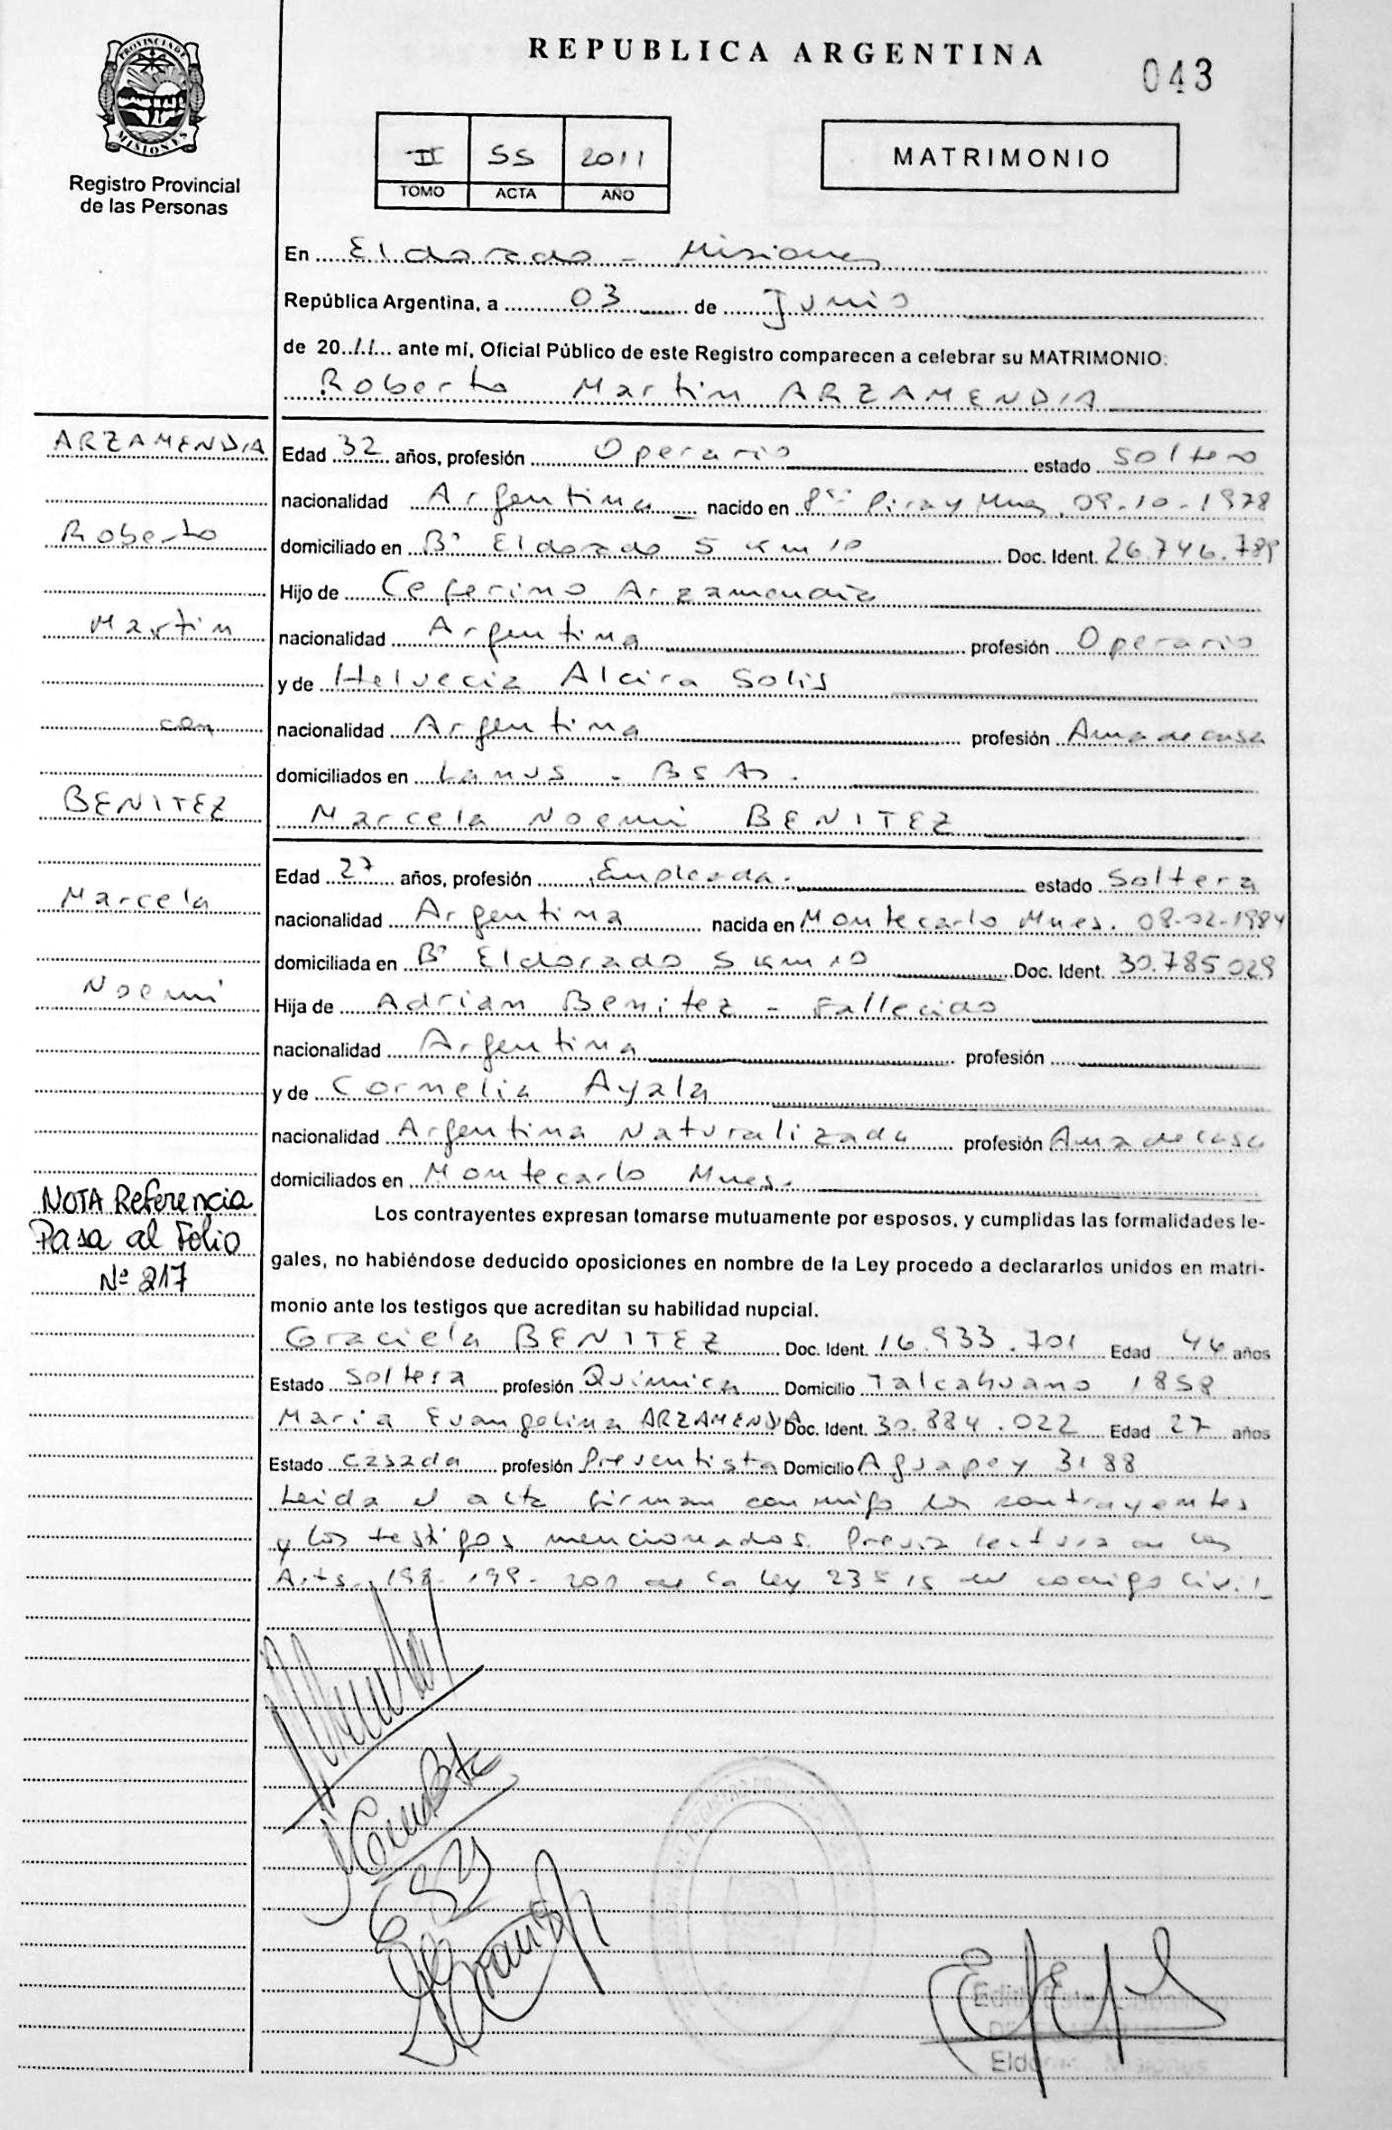 REPUBLICA ARGENTINA
043
PROVINCIA DE MISIONES
Registro Provincial
de las Personas
II SS 2011
TOMO ACTA AÑO
MATRIMONIO
En Eldorado - Misiones
República Argentina, a 03 de Junio
de 2011 ante mí, Oficial Público de este Registro comparecen a celebrar su MATRIMONIO:
Roberto Martin ARZAMENDIA
ARZAMENDIA
Roberto
Martin
con
BENITEZ
Marcela
Noemi
NOTA Referencia
Pasa al Folio
Nº 217
Edad 32 años, profesión Operario estado Soltero
nacionalidad Argentina nacido en Pto Piray Mnes. 09-10-1978
domiciliado en Bº Eldorado 5 Km 10 Doc. Ident. 26.746.789
Hijo de Ceferino Arzamendia
nacionalidad Argentina profesión Operario
y de Helvecia Alcira Solis
nacionalidad Argentina profesión Ama de casa
domiciliados en Lanus - Bs As.
Marcela Noemi BENITEZ
Edad 27 años, profesión Empleada. estado Soltera
nacionalidad Argentina nacida en Montecarlo Mnes. 08-02-1984
domiciliada en Bº Eldorado 5 Km 10 Doc. Ident. 30.785.029
Hija de Adrian Benitez - Fallecido
nacionalidad Argentina profesión
y de Cornelia Ayala
nacionalidad Argentina Naturalizada profesión Ama de casa
domiciliados en Montecarlo Mnes.
Los contrayentes expresan tomarse mutuamente por esposos, y cumplidas las formalidades le-
gales, no habiéndose deducido oposiciones en nombre de la Ley procedo a declararlos unidos en matri-
monio ante los testigos que acreditan su habilidad nupcial.
Graciela BENITEZ Doc. Ident. 16.933.701 Edad 46 años
Estado Soltera profesión Química Domicilio Talcahuano 1858
Maria Evangelina ARZAMENDIA Doc. Ident. 30.884.022 Edad 27 años
Estado casada profesión Preventista Domicilio Aguapey 3188
Leida el acta firman conmigo los contrayentes
y los testigos mencionados. Previa lectura de los
Arts. 198-199-200 de la Ley 23515 del codigo Civil